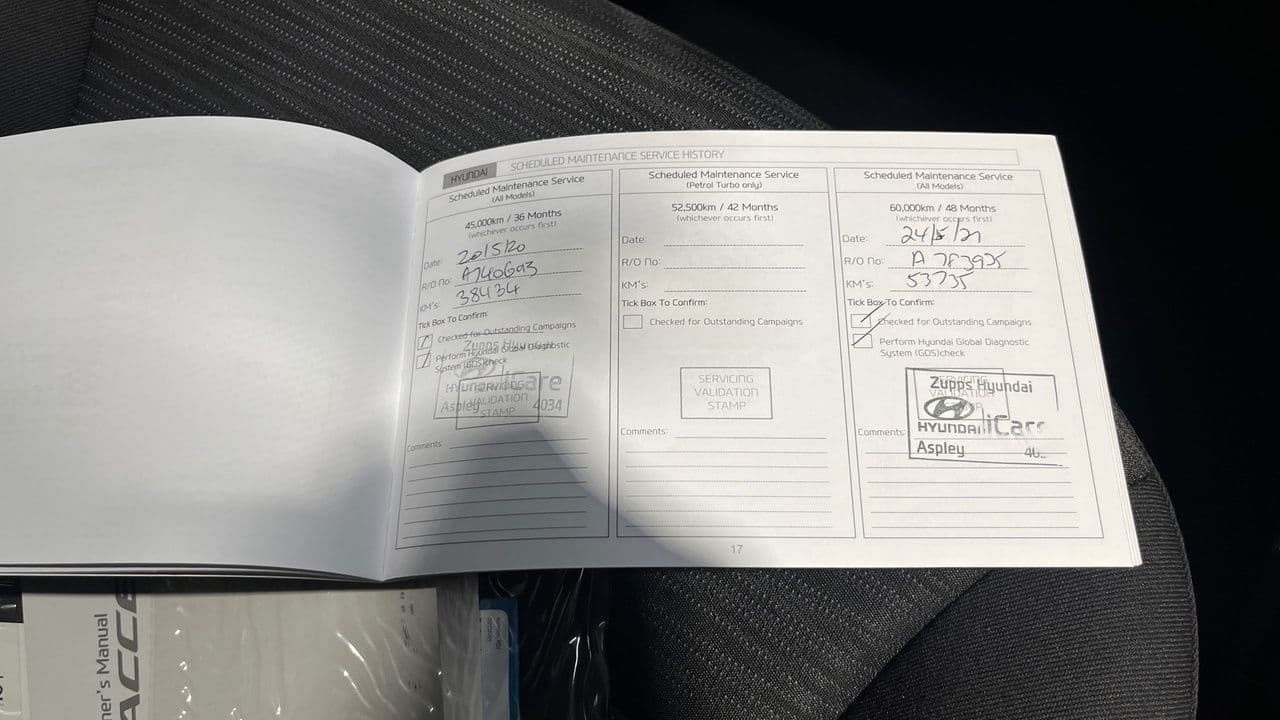 HYUNDAI
SCHEDULED MAINTENANCE SERVICE HISTORY
Scheduled Maintenance Service
(All Models)
45,000km / 36 Months
(whichever occurs first)
Date: 20/5/20
R/O No: A740693
KM's: 38434
Tick Box To Confirm:
Checked for Outstanding Campaigns
Perform Hyundai Global Diagnostic
System (GDS)check
Zupps Hyundai
HYUNDAI iCare
Aspley 4034
SERVICING
VALIDATION
STAMP
Comments:
Scheduled Maintenance Service
(Petrol Turbo only)
52,500km / 42 Months
(whichever occurs first)
Date:
R/O No:
KM's:
Tick Box To Confirm:
Checked for Outstanding Campaigns
SERVICING
VALIDATION
STAMP
Comments:
Scheduled Maintenance Service
(All Models)
60,000km / 48 Months
(whichever occurs first)
Date: 24/5/21
R/O No: A783935
KM's: 53735
Tick Box To Confirm:
Checked for Outstanding Campaigns
Perform Hyundai Global Diagnostic
System (GDS)check
Zupps Hyundai
SERVICING
VALIDATION
HYUNDAI iCar
Comments:
Aspley
17
ner's Manual
ACCE